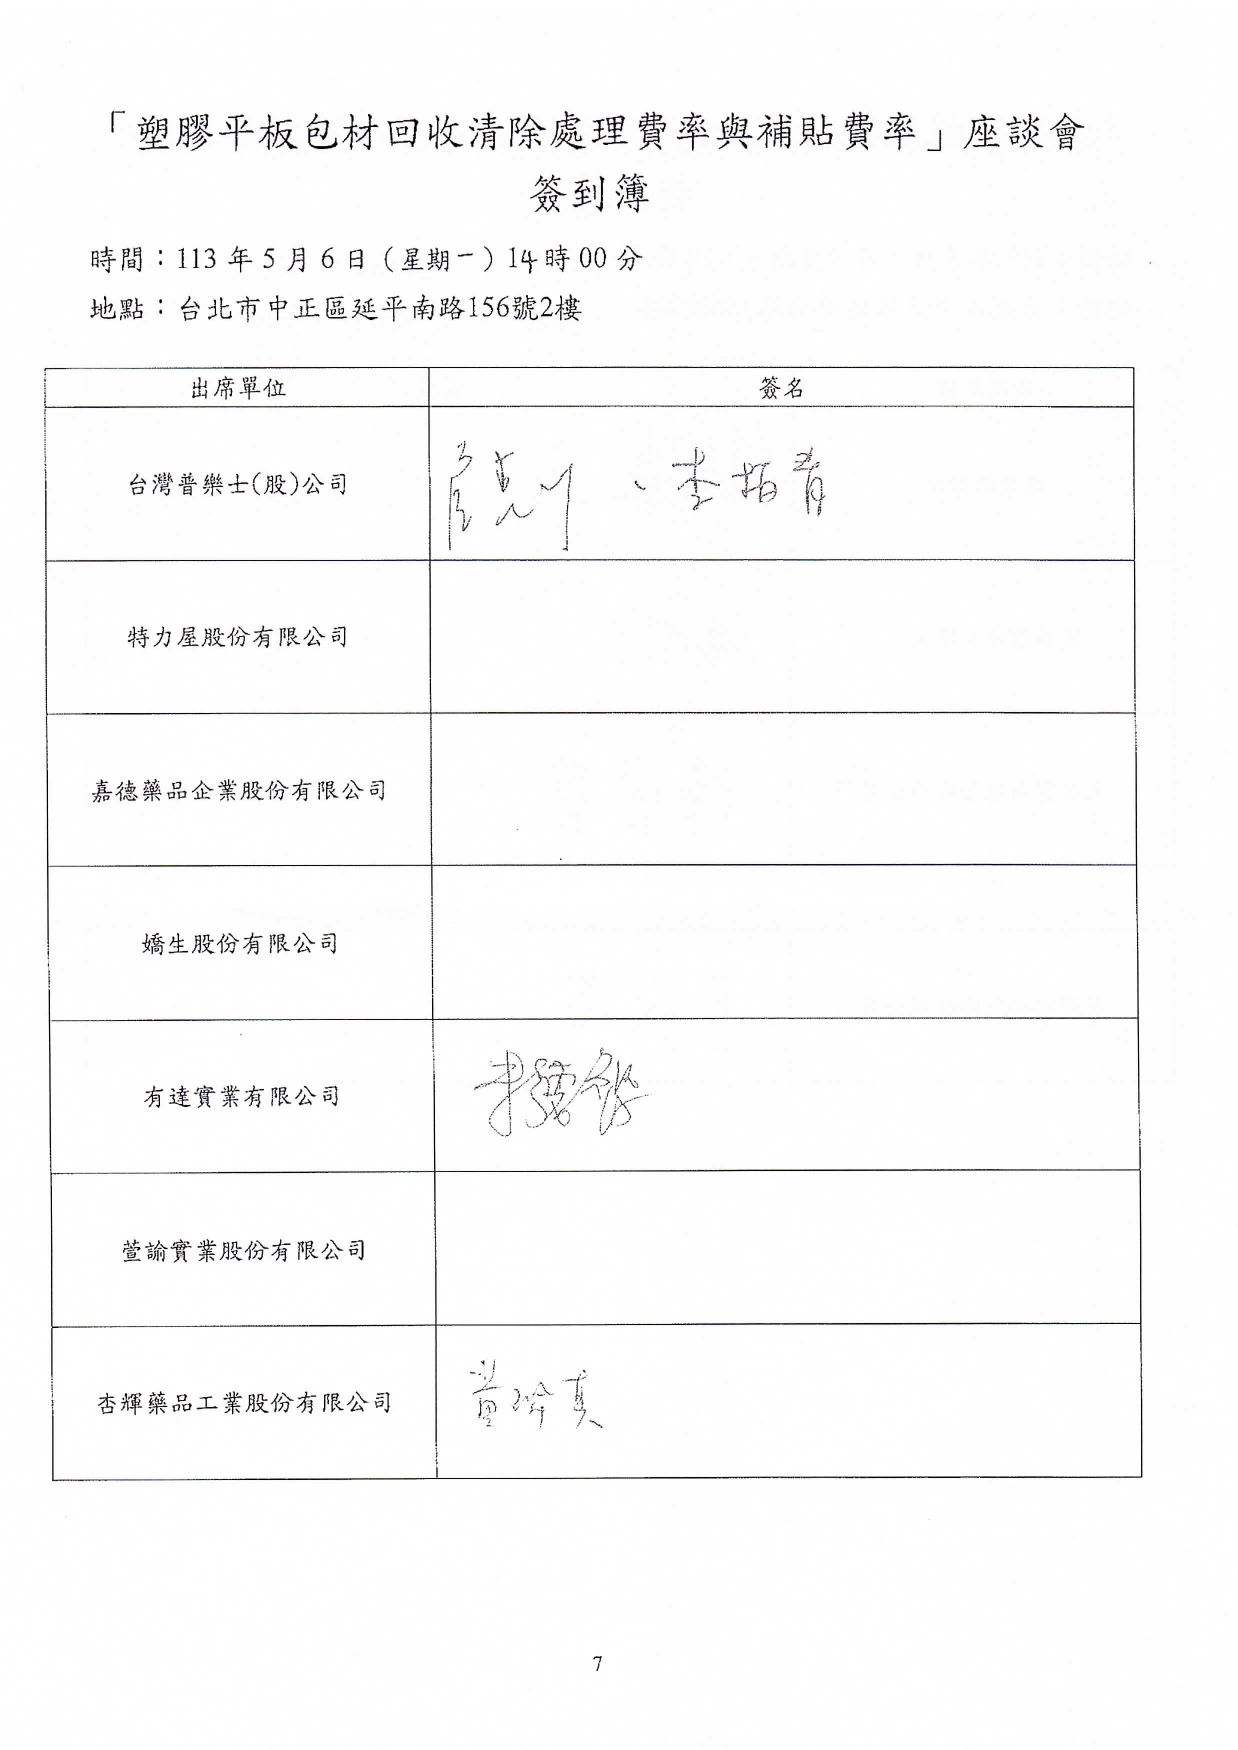 「塑膠平板包材回收清除處理費率與補貼費率」座談會
簽到簿
時間：113年5月6日（星期一）14時00分
地點：台北市中正區延平南路156號2樓
出席單位 簽名
台灣普樂士(股)公司 、李柏青
特力屋股份有限公司
嘉德藥品企業股份有限公司
嬌生股份有限公司
有達實業有限公司
萱諭實業股份有限公司
杏輝藥品工業股份有限公司
7